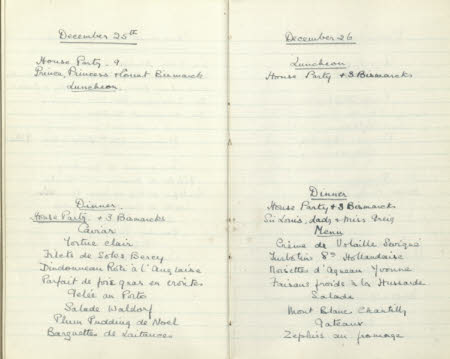 December 25th
House Party 9.
Prince, Princess & Count Bismarck
Luncheon.
Dinner.
House Party + 3 Bismarcks
Caviar
Tortue clair
Filets de Soles Bercy
Dindonneau Rôti à l'Anglaise
Parfait de foie gras en croûtes
Gelée au Porto
Salade Waldorf
Plum Pudding de Noel
Barquettes de Laitances
December 26
Luncheon
House Party + 3 Bismarcks
Dinner
House Party + 3 Bismarcks
Sir Louis, Lady & Miss Greig
Menu
Crème de Volaille Sevigné
Turbotin Sce Hollandaise
Noisettes d'Agneau Yvonne
Faisans froids à la Hussarde
Salade
Mont Blanc Chantilly
Gateaux
Zephirs au fromage